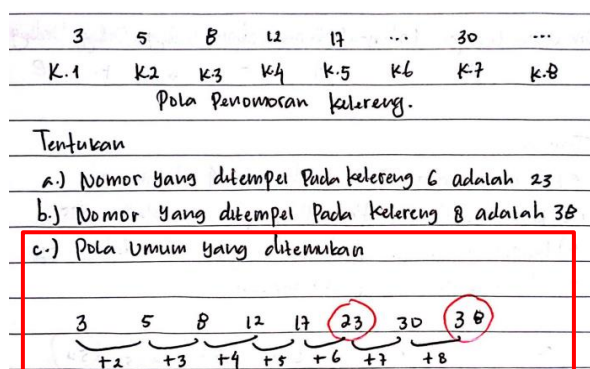 3 5 8 12 17 ... 30 ...
K.1 K2 K.3 K.4 K.5 K6 K.7 K.8
Pola Penomoran kelereng.
Tentukan
a.) Nomor yang ditempel Pada kelereng 6 adalah 23
b.) Nomor yang ditempel Pada kelereng 8 adalah 38
c.) Pola Umum yang ditemukan
3 5 8 12 17 23 30 38
+2 +3 +4 +5 +6 +7 +8